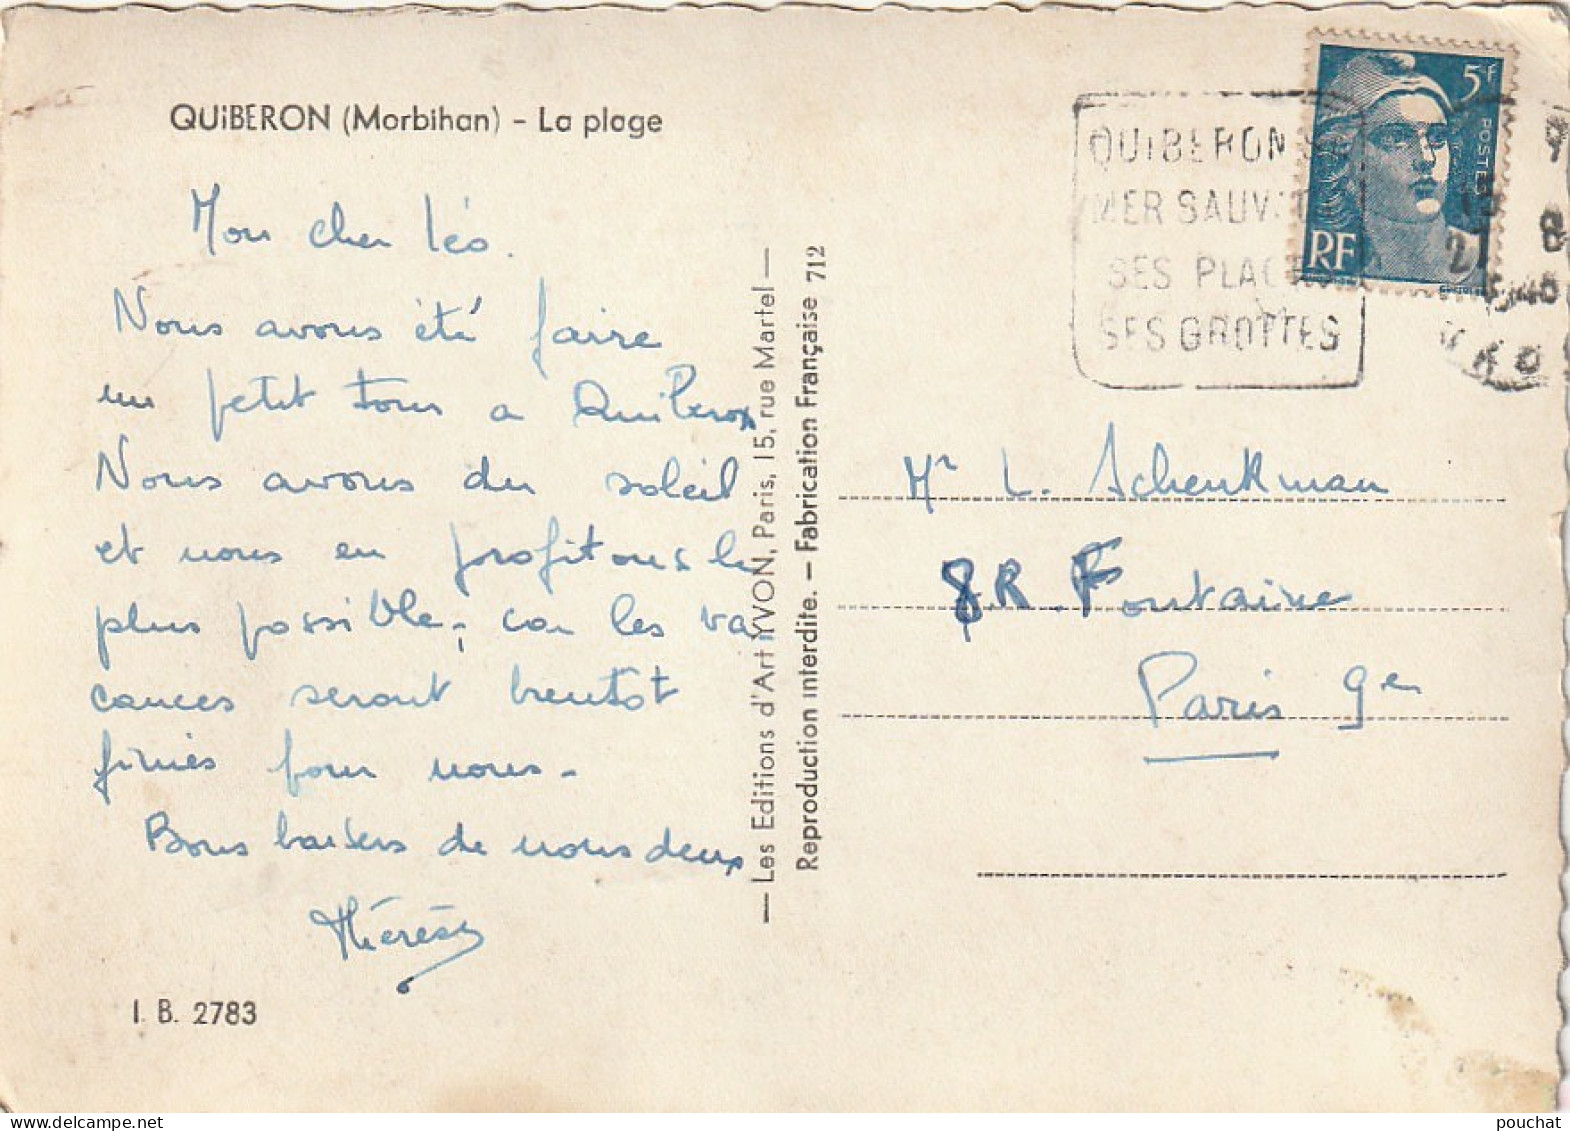 QUiBERON (Morbihan) - La plage
Mon cher Léo.
Nous avons été faire
un petit tour a Quiberon
Nous avons du soleil
et nous en profitons le
plus possible, car les va
cances seront bientôt
finies pour nous.
Bons baisers de nous deux
Thérèse
I. B. 2783
— Les Editions d'Art YVON, Paris, 15, rue Martel —
Reproduction interdite. — Fabrication Française 712
QUIBERON
MER SAUV
SES PLAG
SES GROTTES
5F
POSTES
RF
21
8
Mr L. Schenkman
8 R. Fontaine
Paris 9e
pouchat